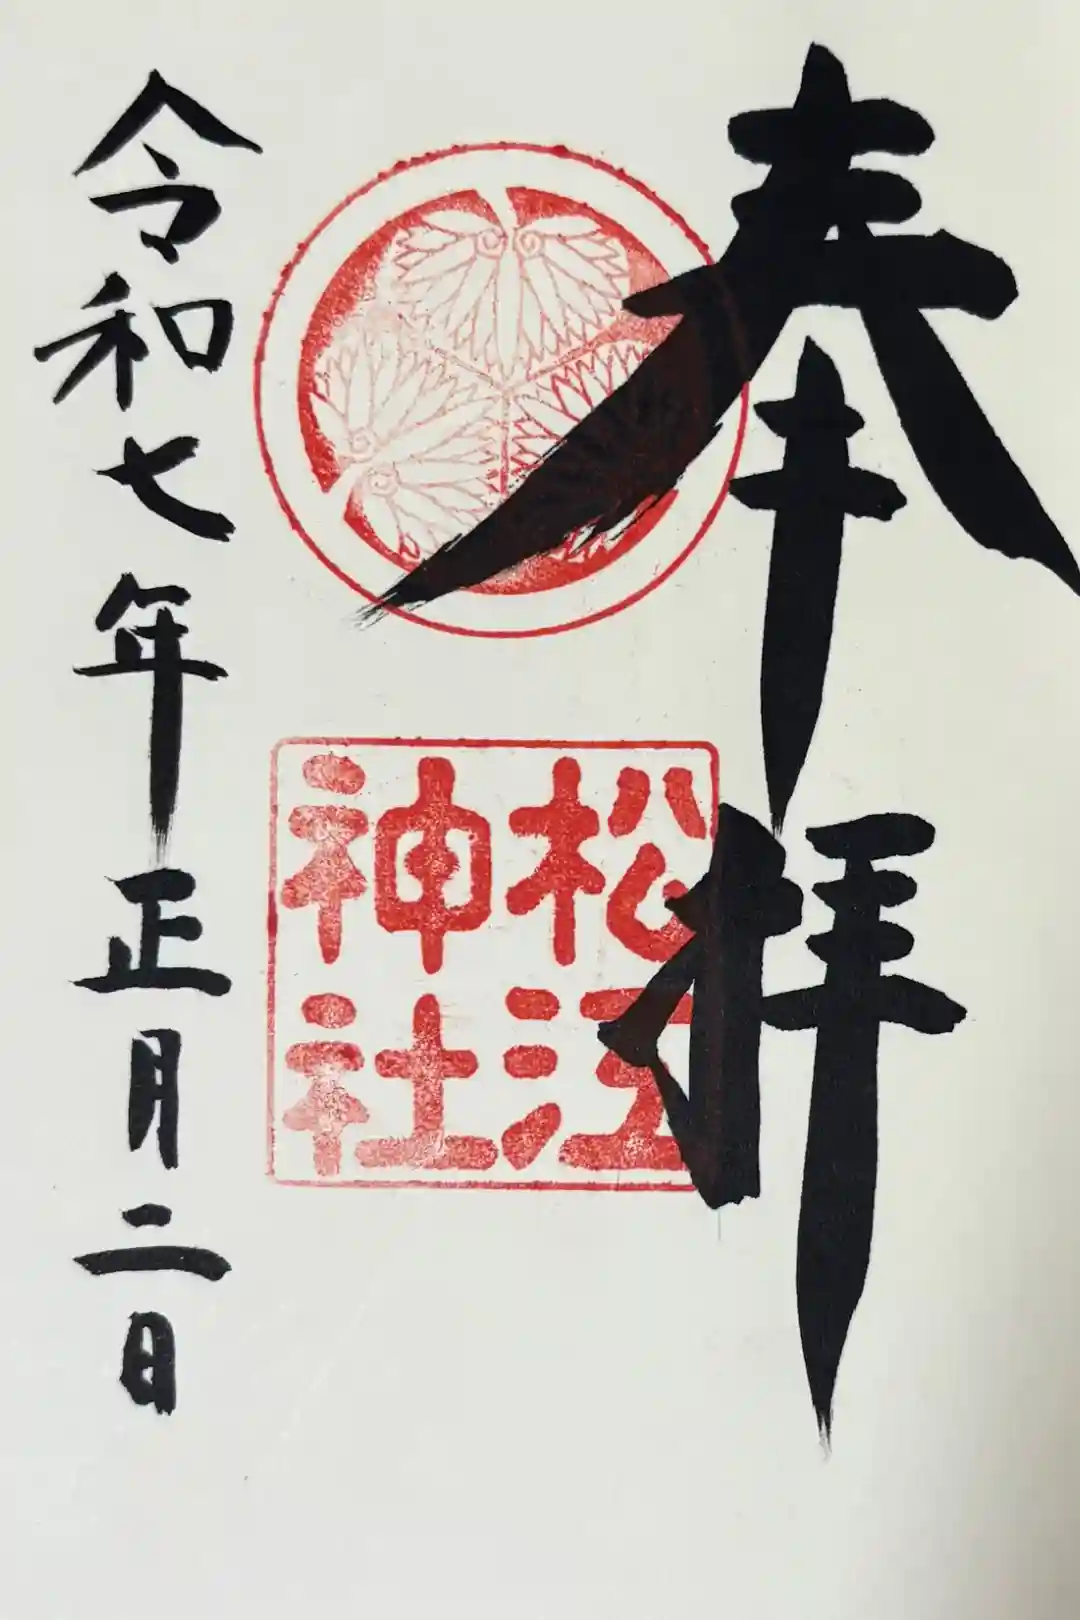 奉拝
松江
神社
令和七年正月二日